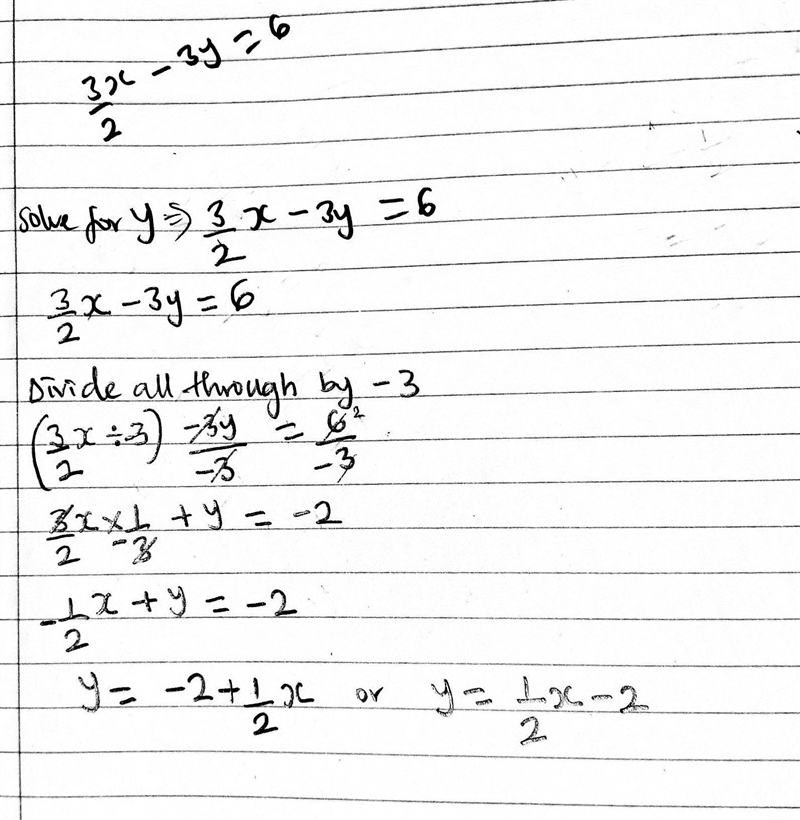 3x/2 - 3y = 6
Solve for y ⇒ 3/2 x - 3y = 6
3/2 x - 3y = 6
Divide all through by -3
(3/2 x ÷ -3) -3y/-3 = 6²/-3
3/2 x × 1/-3 + y = -2
-1/2 x + y = -2
y = -2 + 1/2 x or y = 1/2 x - 2